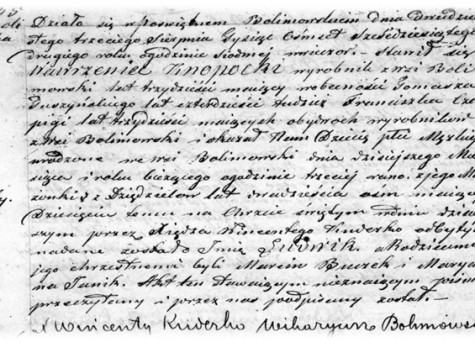 Działo się w poświęckim Bolimowskiem dnia dwudzies
tego trzeciego Sierpnia Tysiąc Ośmset Sześćdziesiątego
drugiego roku o godzinie siodmej wieczór. Stawił się
Wawrzeniec Knopocki wyrobnik z wsi Boli
mowski lat trzydzieści maiący w obecności Tomasza
lat czterdzieści tudzież Franciszka
lat trzydzieści maiących obydwóch wyrobników
z wsi Bolimowski i okazał Nam Dziecię płci Męzkiej
urodzone we wsi Bolimowski dnia dzisiejszego Mie
siąca i roku bieżącego o godzinie trzeciej rano, z jego Mał
żonki z lat dwadzieścia ośm maiącej
Dziecięciu temu na Chrzcie świętym w dniu dzisiej
szym przez Xiędza Wincentego Kuderko odbytym
nadane zostało Imię Ludwik, a Rodzicami
jego chrzestnemi byli Marcin Buczek i Mary
na Janik. Akt ten stawaiącym nieznaiącym pisma
przeczytany i przez nas podpisany został.
X Wincenty Kuderko Wikaryusz Bolimows